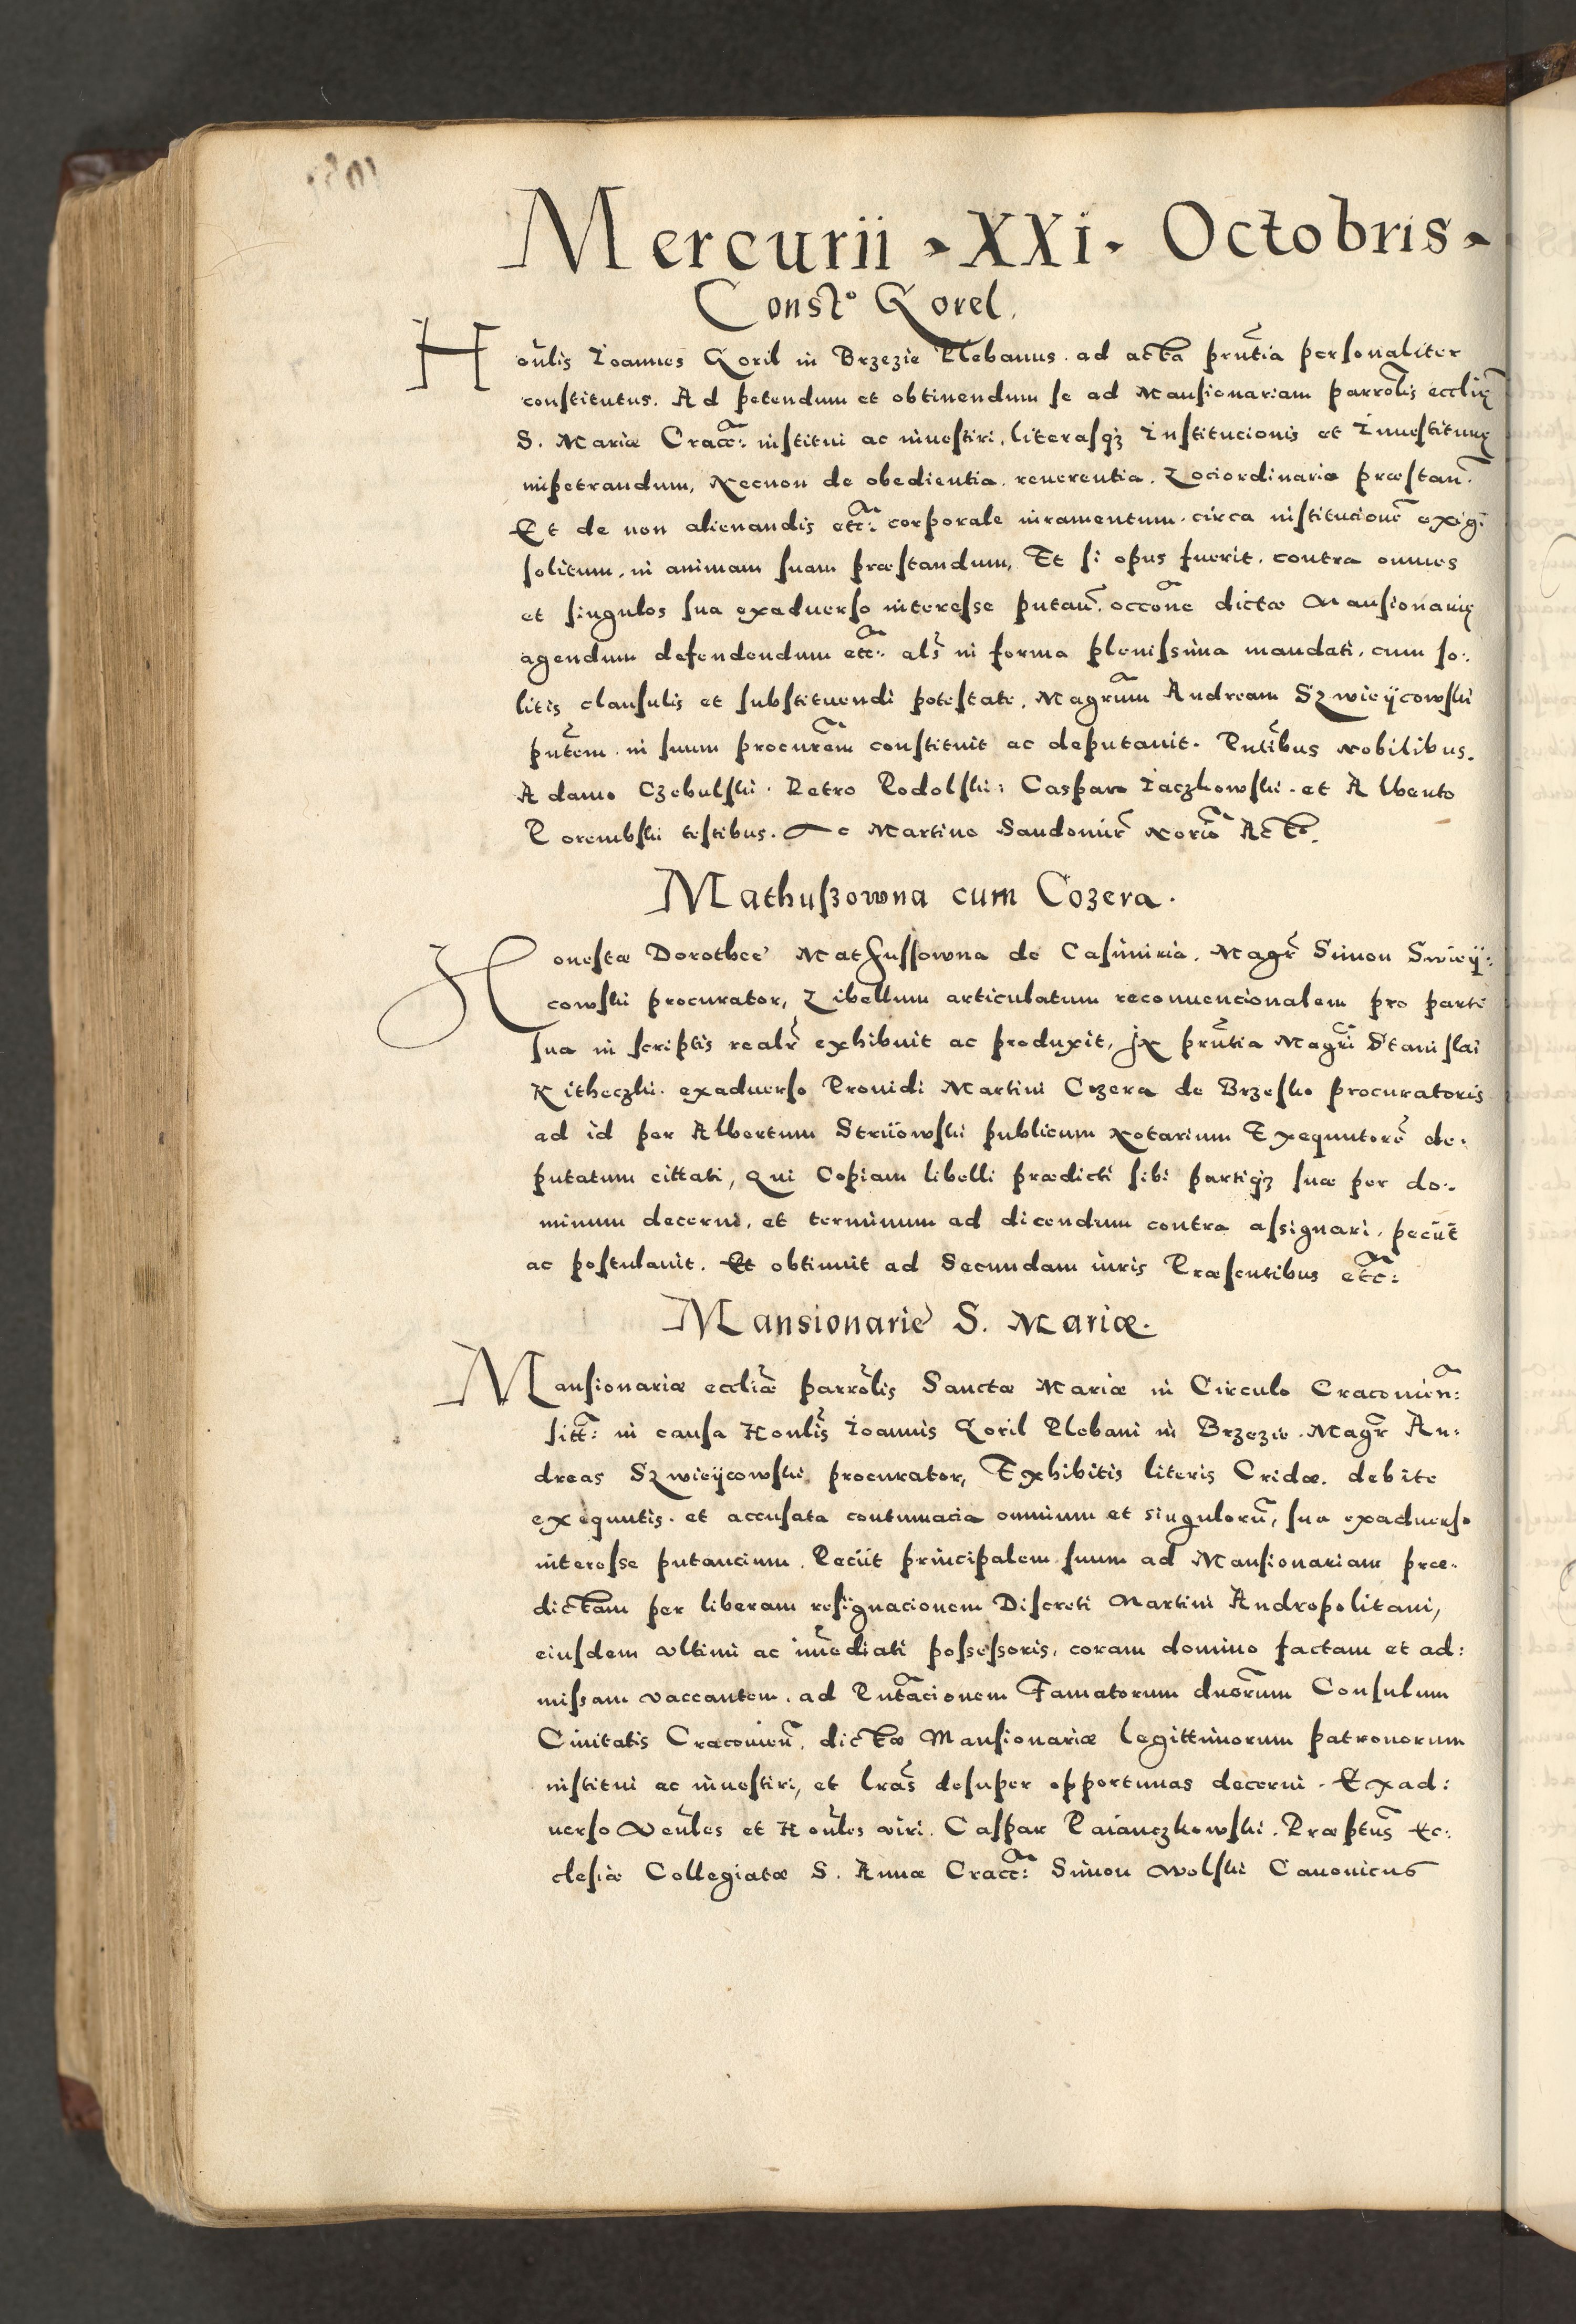 Mercurii XXI Octobris
Constº Gorel.
Honlis Ioannes Goril in Brzezie Plebanus. ad acta pnntia personaliter
constitutus. Ad petendum et obtinendum se ad Mansionariam parrolis ecclię
S. Mariæ Cracc: institui ac inuestiri, literasqꝫ Institucionis et Inuestiturę
impetrandum, Necnon de obedientia. reuerentia. Lociordinario præstan.
Et de non alienandis etc: corporale iuramentum. circa institucionē exigi
solitum. in animam suam præstandum, Et si opus fuerit. contra omnes
et singulos sua exaduerso interesse putan. occone dictæ Mansionarię
agendum defendendum etc: als in forma plenissima mandati. cum so:
litis clausulis et substituendi potestate. Magrum Andream Szwieÿcowski
pntem. in suum procurem constituit ac deputauit. Pntibus Nobilibus.
Adamo Czebulski. Petro Podolski: Caspare Iaczkowski. et Alberto
Porembski testibus. Ac Martino Sandomir Norio Acto.
Mathuszowna cum Cozera.
Honestæ Dorotheę Mathussowna de Casimiria. Magr Simon Swieÿ:
cowski procurator, Libellum articulatum reconuencionalem pro parte
sua in scriptis realr exhibuit ac produxit, In pnntia Magri Stanislai
Kitheczki. exaduerso Prouidi Martini Cozera de Brzesko procuratoris
ad id per Albertum Striiowski publicum Notarium Exequutorē de:
putatum cittati, Qui Copiam libelli prædicti sibi partiqꝫ suæ per do:
minum decerni. et terminum ad dicendum contra assignari. peciit
ac postulauit. Et obtinuit ad Secundam iuris Præsentibus etc:
Mansionarie S. Mariæ.
Mansionariæ eccliæ parrolis Sanctæ Mariæ in Circulo Cracouien:
sitt: in causa Honlis Ioannis Goril Plebani in Brzezie. Magr An:
dreas Szwieÿcowski procurator, Exhibitis literis Cridæ. debite
exequutis. et accusata contumacia omnium et singulorū, sua exaduerso
interesse putancium. Peciit principalem suum ad Mansionariam præ:
dictam per liberam resignacionem Discreti Martini Andropolitani,
eiusdem vltimi ac imediati possessoris. coram domino factam et ad:
missam vaccantem. ad Pntacionem Famatorum dnorum Consulum
Ciuitatis Cracouien. dictæ Mansionariæ legittimorum patronorum
institui ac inuestiri, et lras desuper opportunas decerni. Exad:
uerso Venles et Honles viri. Caspar Paianczkowski. Præptus Ec:
clesiæ Collegiatæ S. Annæ Cracc: Simon Wolski Canonicus